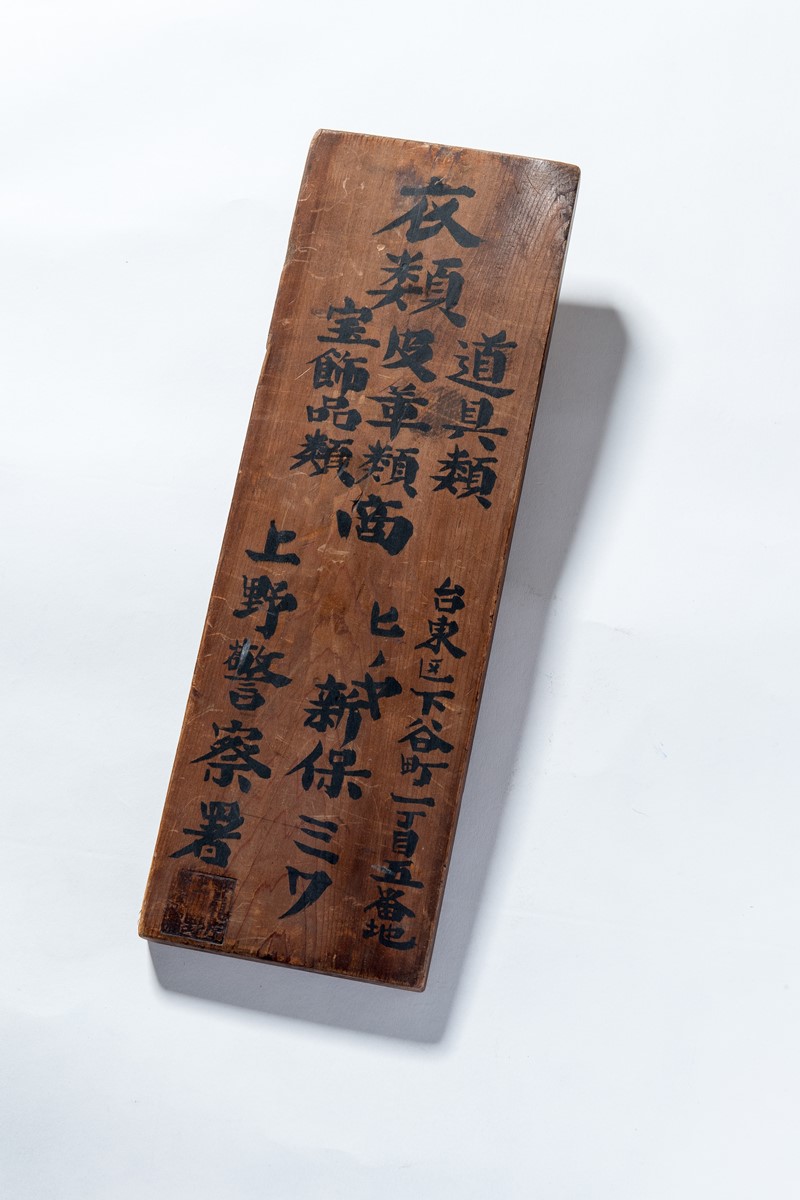 道具類
衣類皮革類商
宝飾品類
台東区下谷町一丁目五番地
ヒノヤ
新保ミワ
上野警察署